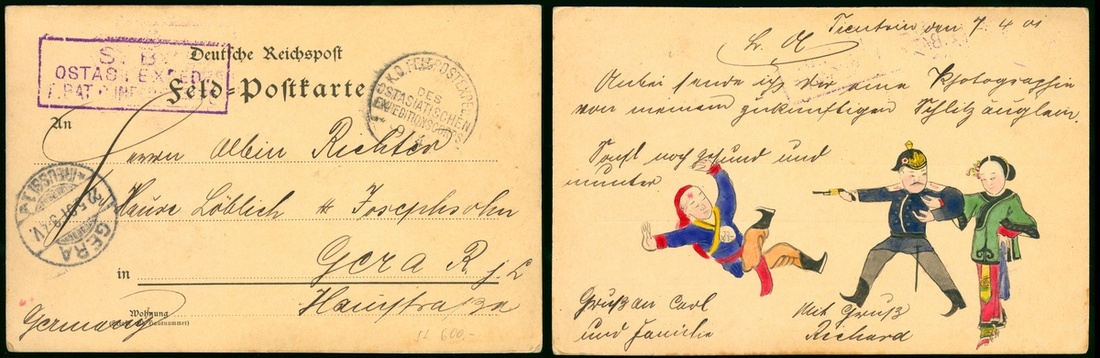 S. B.
OSTAS. EXPED
BAT
Deutsche Reichspost
Feld-Postkarte
K.D. FELD-POSTEXPED.
DES
OSTASIATISCHEN
EXPEDITIONSCORPS
An
Herrn Albin Richter
Hause Löblich & Josephsohn
GERA
(REUSS)
22.5.01
in Gera R. j. L
Hainstraße
Wohnung
(Straße und Hausnummer)
Germany
600.-
Tientsin den 7.4.01
L. A.
Anbei sende ich Dir eine Photographie
von meinem zukünftigen Schlitzäuglein.
Sonst noch gesund und
munter
Gruß an Carl
und Familie
Mit Gruß
Richard